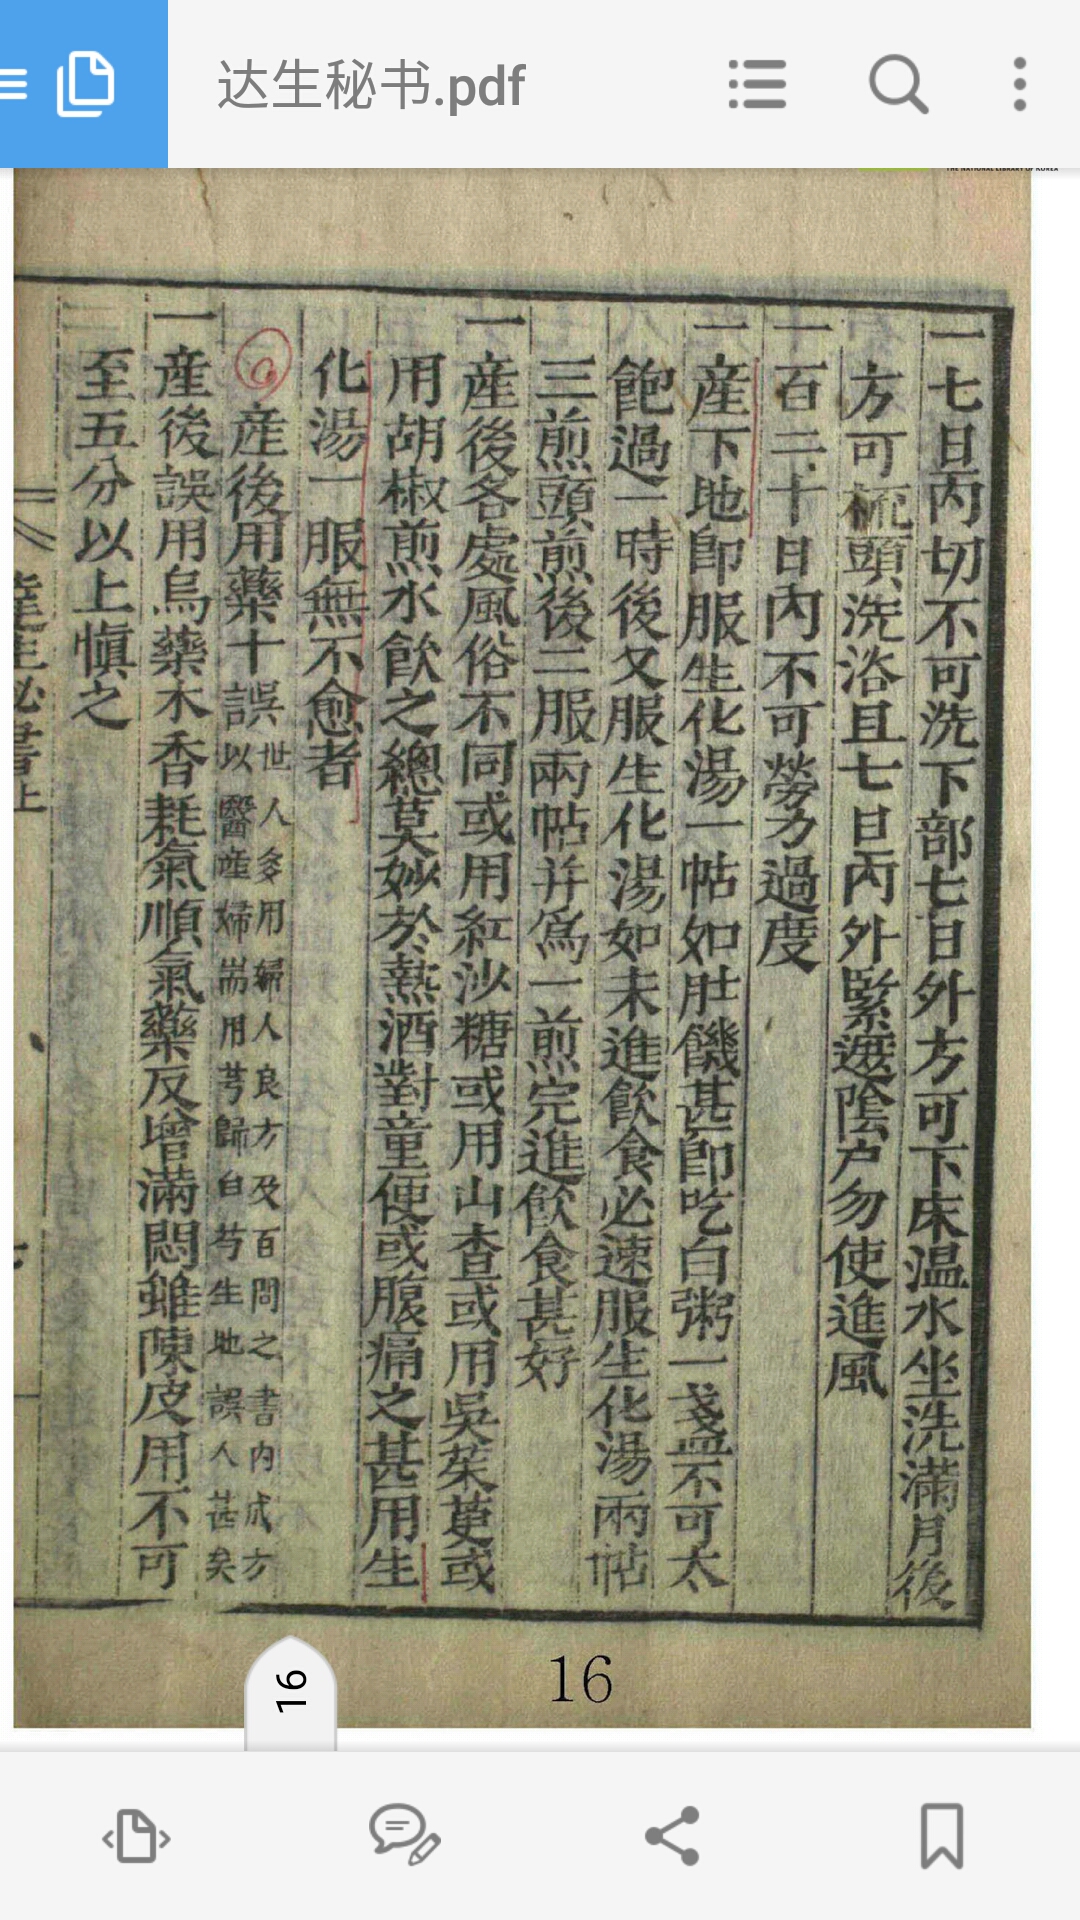 达生秘书.pdf
THE NATIONAL LIBRARY OF KOREA
一七日內切不可洗下部七日外方可下床温水坐洗滿月後
方可梳頭洗浴且七日內外緊遮陰户勿使進風
一百二十日內不可勞力過度
一産下地卽服生化湯一帖如肚饑甚卽吃白粥一盞不可太
飽過一時後又服生化湯如未進飮食必速服生化湯兩帖
三煎頭煎後二服兩帖并爲一煎完進飮食甚好
一産後各處風俗不同或用紅沙糖或用山查或用吳茱萸或
用胡椒煎水飮之總莫妙於熱酒對童便或腹痛之甚用生
化湯一服無不愈者
産後用藥十誤世人多用婦人良方及百問之書内成方
以醫産婦耑用芎歸白芍生地誤人甚矣
一産後誤用烏藥木香耗氣順氣藥反增滿悶雖陳皮用不可
至五分以上愼之
達生秘書上
七
16
16